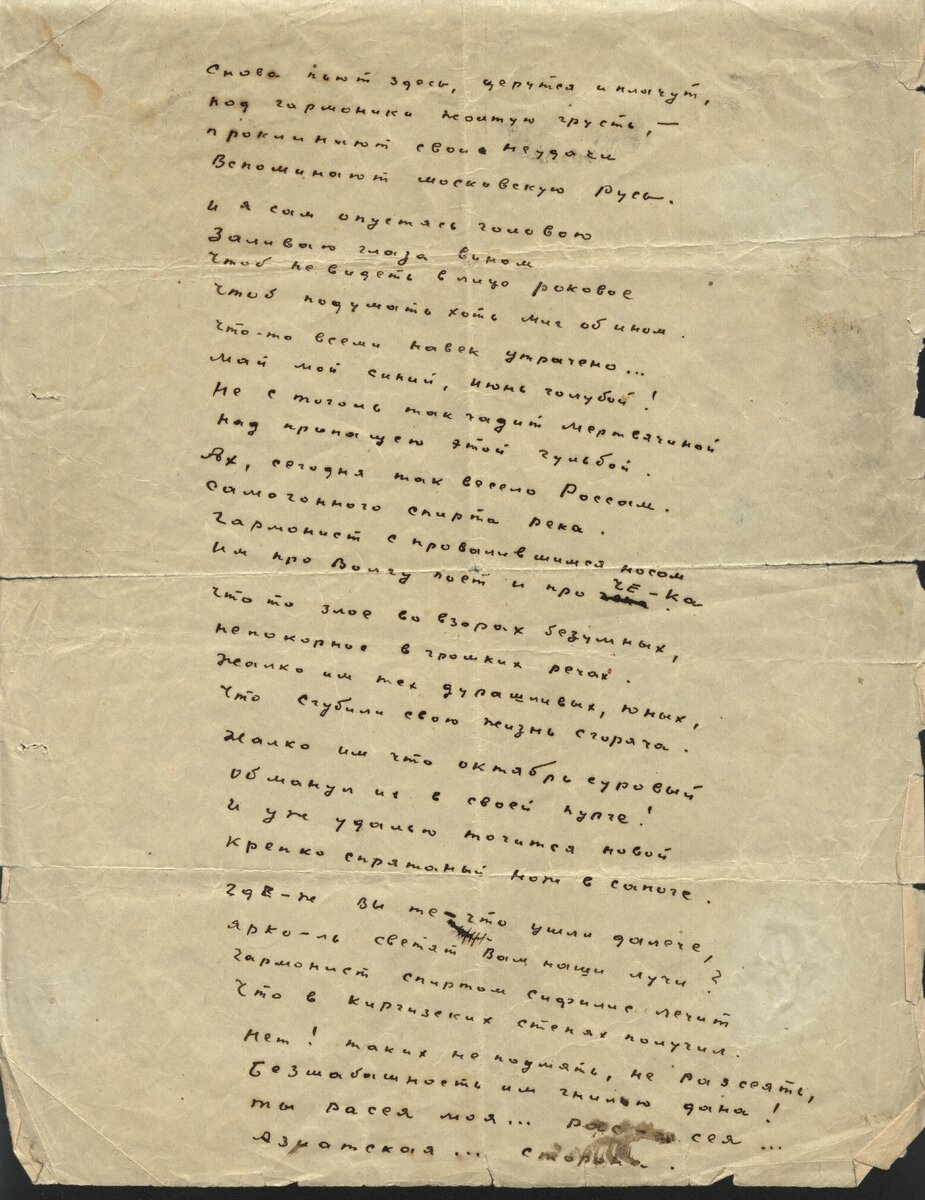 Снова пьют здесь, дерутся и плачут,
под гармоники желтую грусть, —
проклинают свои неудачи
Вспоминают московскую Русь.
и я сам опустясь головою
Заливаю глаза вином
Чтоб не видеть в лицо роковое
Чтоб подумать хоть миг об ином.
Что-то всеми навек утрачено...
Май мой синий, июнь голубой!
Не с тоголь так чадит мертвячиной
над пропащею этой гульбой.
Ах, сегодня так весело Россам.
самогонного спирта река.
Гармонист с провалившимся носом
Им про Волгу поет и про ЧЕ-Ка.
Что то злое во взорах безумных,
непокорное в громких речах.
Жалко им тех дурашливых, юных,
Что сгубили свою жизнь сгоряча.
Жалко им что октябрь суровый
Обманул их в своей пурге!
И уж удалью точится новой
Крепко спрятаный нож в сапоге.
Где-ж вы те-что ушли далече,
Ярко-ль светят Вам наши лучи?
Гармонист спиртом сифилис лечит
Что в киргизских степях получил.
Нет! таких не подмять, не разсеять,
Безшабашность им гнилью дана!
ты расея моя... рас-сея...
Азиатская... сторона.